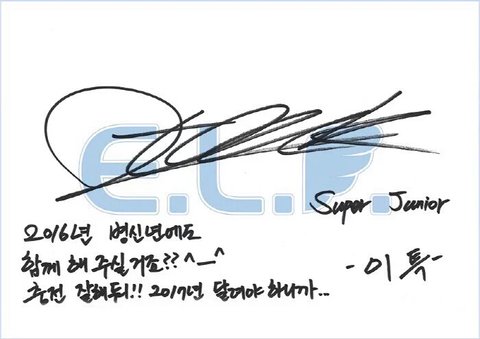 E.L.F.
Super Junior
2016년 병신년에도
함께 해 주실거죠?? ^—^
충전 잘해둬!! 2017년 달려야 하니까..
-이특-